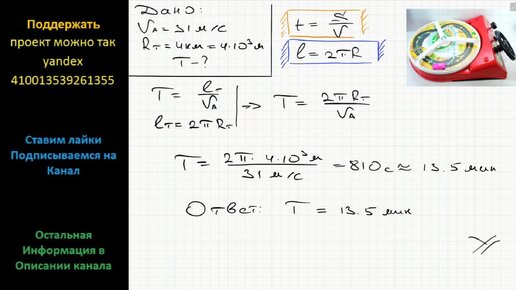 Поддержать
проект можно так
yandex
410013539261355
Ставим лайки
Подписываемся на
Канал
Остальная
Информация в
Описании канала
Дано:
Vд = 31 м/с
Rт = 4км = 4·10³ м
T - ?
t = S/V
l = 2πR
T = lт/Vд
lт = 2πRт
=> T = 2πRт/Vд
T = 2π·4·10³м/31 м/с = 810с ≈ 13.5 мин
Ответ: T = 13.5 мин